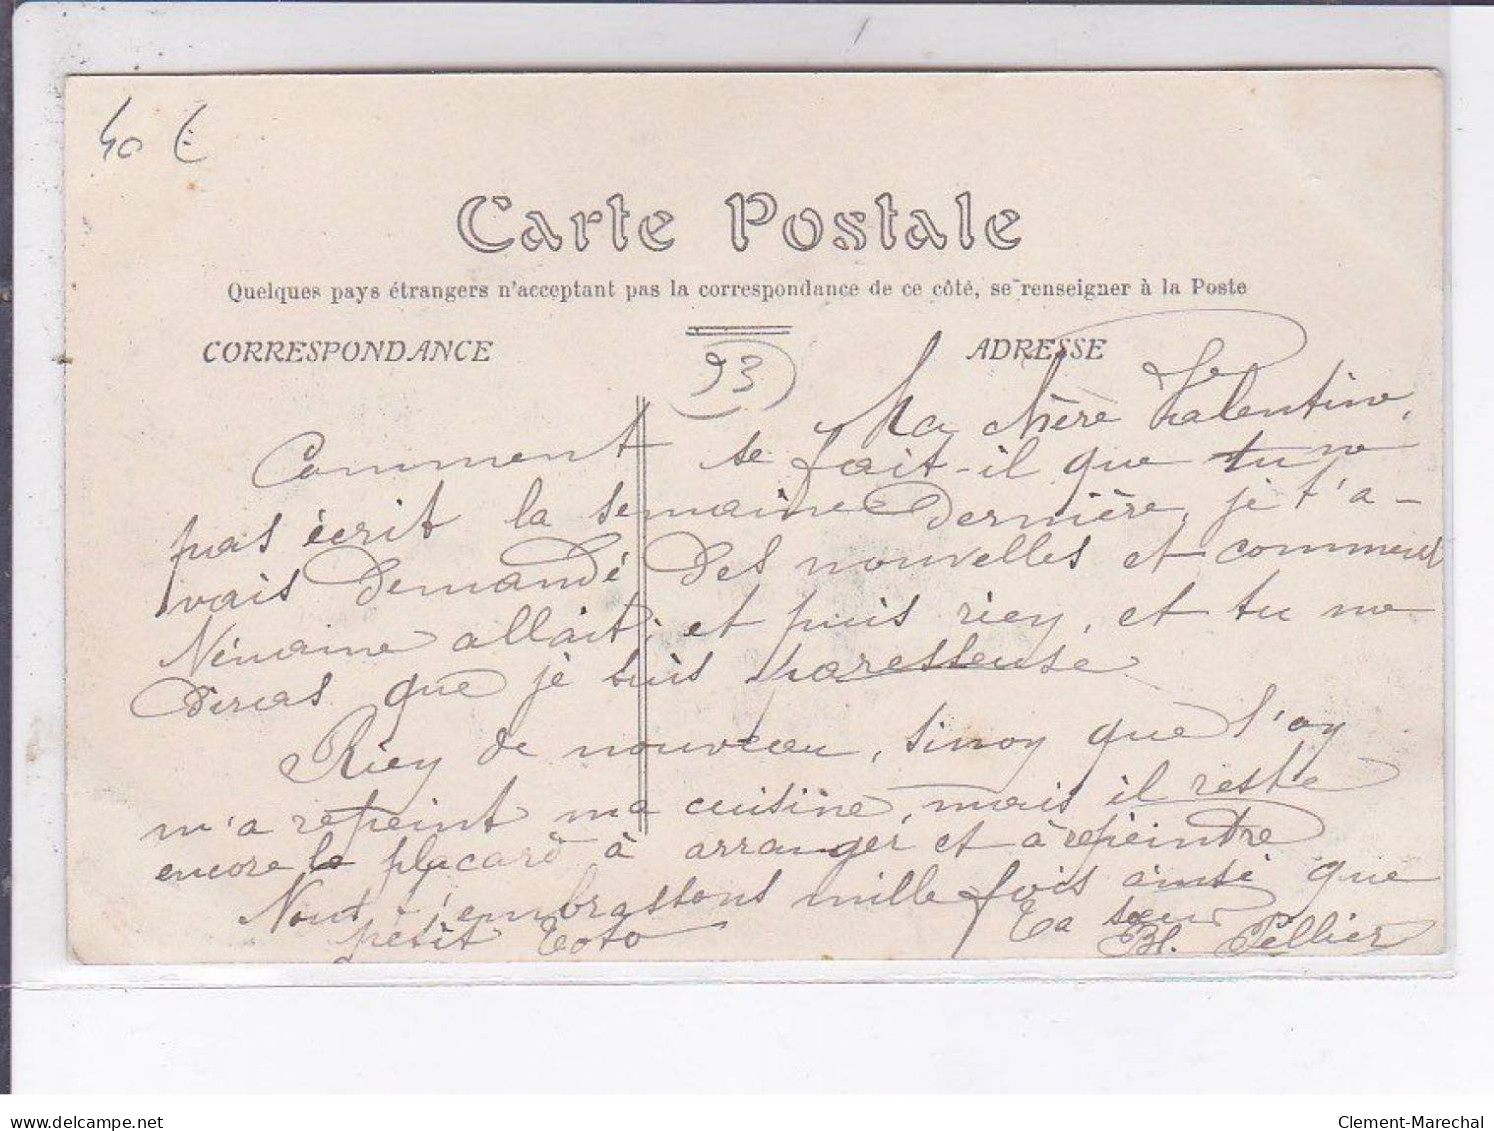 40 €
Carte Postale
Quelques pays étrangers n'acceptant pas la correspondance de ce côté, se renseigner à la Poste
CORRESPONDANCE
ADRESSE
93
Ma chère Valentine,
Comment se fait-il que tu ne
pas écrit la semaine dernière, je t'a-
vais demandé des nouvelles et comment
Némaine allait, et puis riey, et tu me
diras que je suis paresseuse
Riey de nouveau, sinoy que l'oy
m'a repeint ma cuisine, mais il reste
encore le placard à arranger et à repeindre
Nous t'embrassons mille fois ainsi que
petit Toto
Ta sœur
Bl. Pellier
delcampe.net
Clement-Marechal